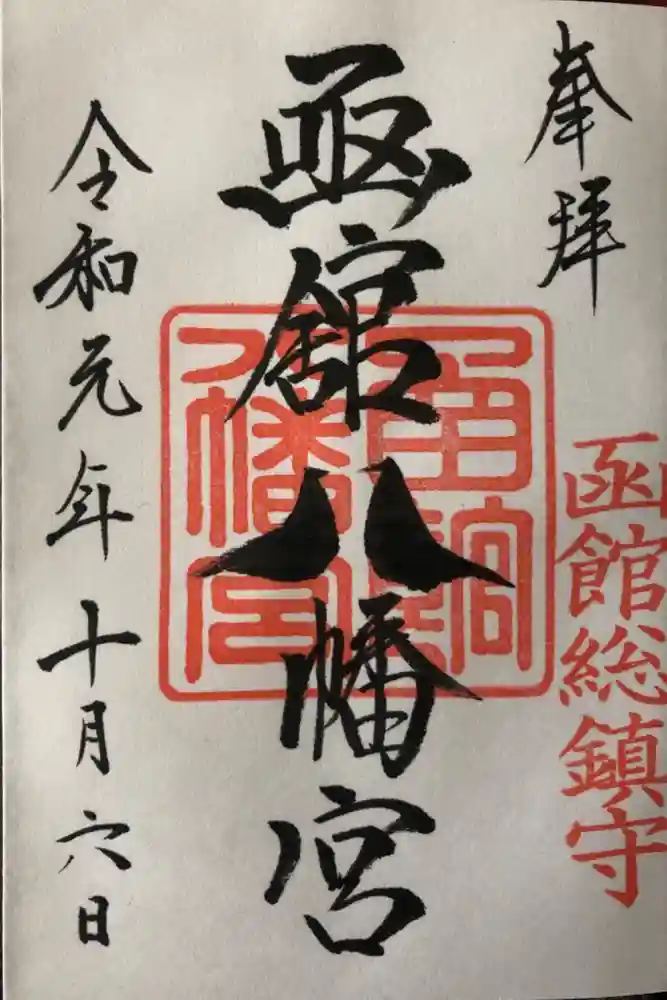 奉拝
函館総鎮守
函館八幡宮
函館八幡宮
令和元年十月六日